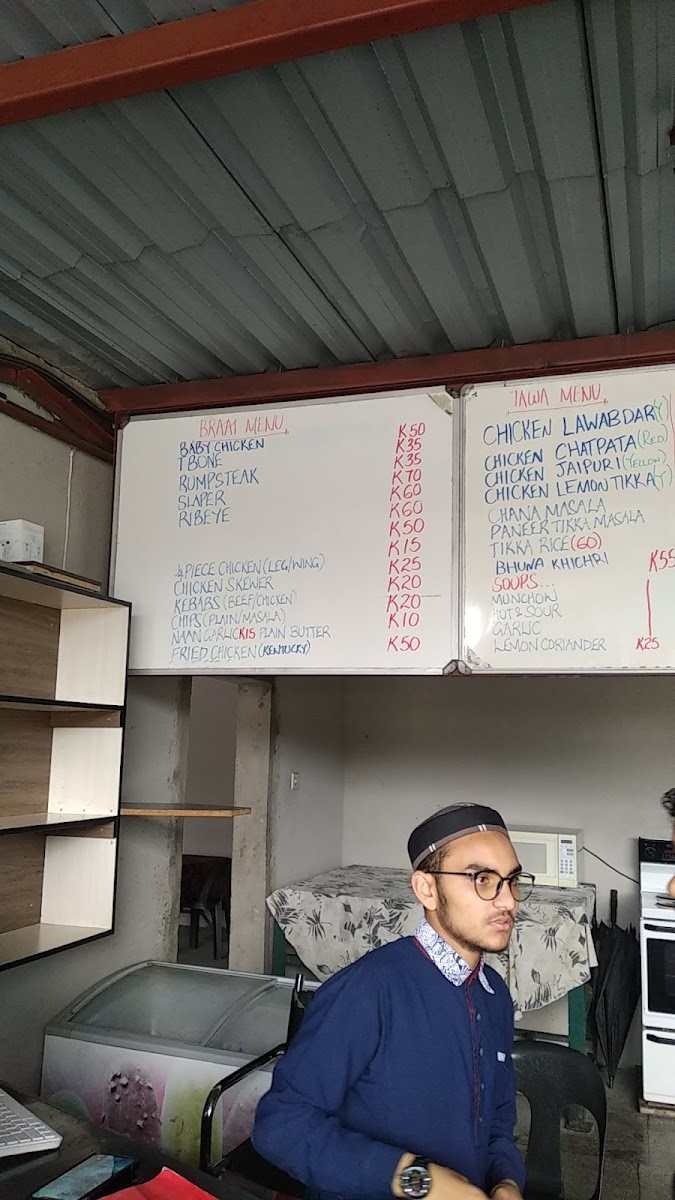 BRAAI MENU
BABY CHICKEN
T BONE
RUMPSTEAK
SLAPER
RIBEYE
1/4 PIECE CHICKEN (LEG/WING)
CHICKEN SKEWER
KEBABS (BEEF/CHICKEN)
CHIPS (PLAIN/MASALA)
NAAN GARLIC K15 PLAIN BUTTER
FRIED CHICKEN (KENTUCKY)
K50
K35
K35
K70
K60
K60
K50
K15
K25
K20
K20
K10
K50
TAWA MENU
CHICKEN LAWABDAR (Y)
CHICKEN CHATPATA (RED)
CHICKEN JAIPURI (YELLOW)
CHICKEN LEMON TIKKA (Y)
CHANA MASALA
PANEER TIKKA MASALA
TIKKA RICE (60)
BHUNA KHICHRI K55
SOUPS...
MUNCHON
HOT & SOUR
GARLIC
LEMON CORIANDER K25